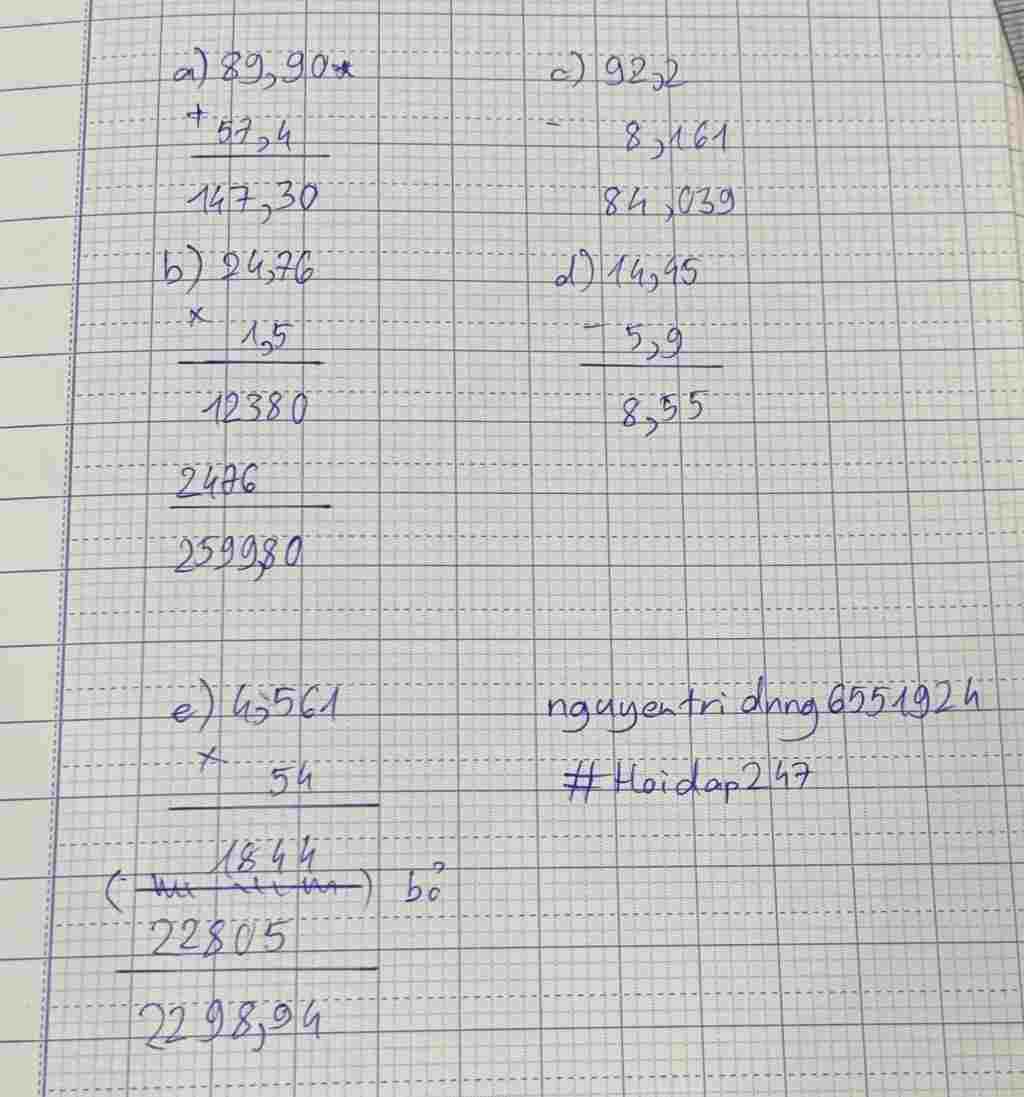 a) 89,90
+
57,4
147,30
b) 24,76
×
1,5
12380
2476
259980
c) 92,2
-
8,161
84,039
d) 14,45
-
5,9
8,55
e) 4,561
×
54
1844
( ) bỏ
22805
2298,94
nguyentridhng6551924
#Hoidap247